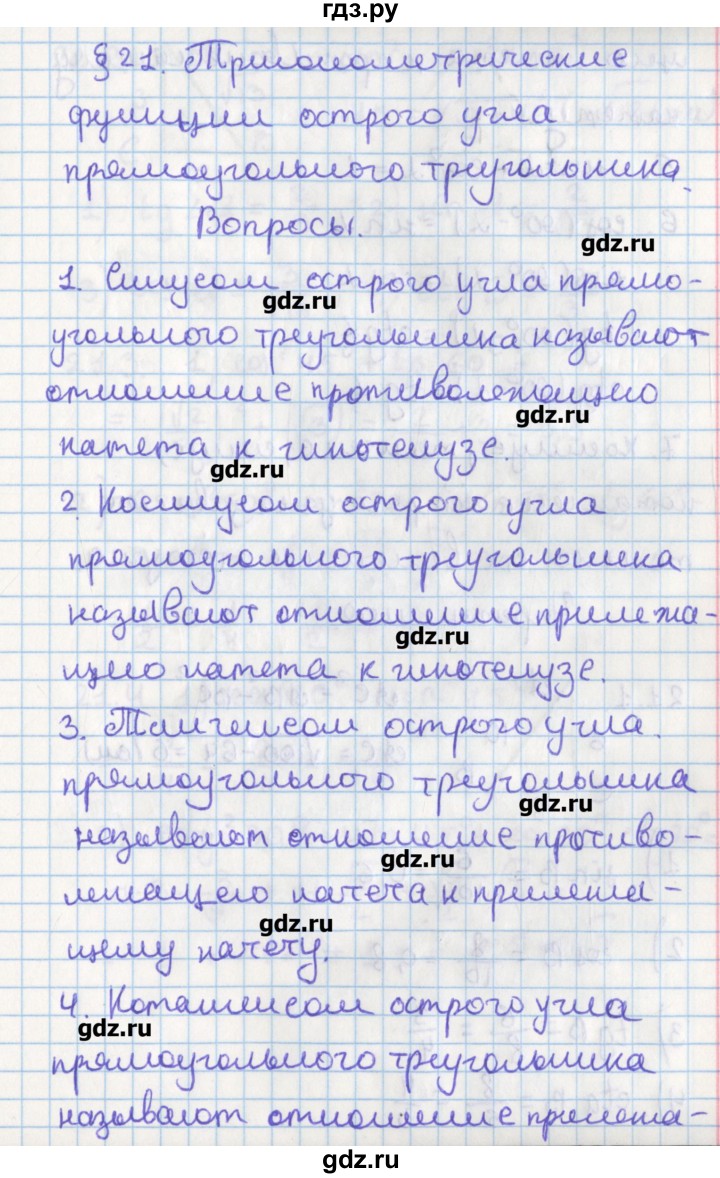 гдз.ру
§ 21. Тригонометрические
функции острого угла
прямоугольного треугольника.
Вопросы.
gdz.ru
1. Синусом острого угла прямо-
gdz.ru
угольного треугольника называют
отношение противолежащего
gdz.ru
катета к гипотенузе.
gdz.ru
2. Косинусом острого угла
прямоугольного треугольника
называют отношение прилежа-
gdz.ru
щего катета к гипотенузе.
3. Тангенсом острого угла.
прямоугольного треугольника
gdz.ru
называют отношение противо-
gdz.ru
лежащего катета к прилежа-
gdz.ru
щему катету.
4. Котангенсом острого угла
gdz.ru
прямоугольного треугольника
называют отношение прилежа-
gdz.ru